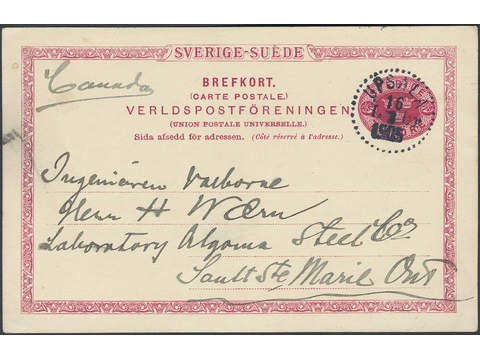 SVERIGE-SUÈDE
Canada
BREFKORT.
(CARTE POSTALE)
VERLDSPOSTFÖRENINGEN
(UNION POSTALE UNIVERSELLE.)
Sida afsedd för adressen. (Côté réservé à l'adresse.)
UPSALA
16
1905
Ingeniören Valborne
Herr H Wærn
Laboratory Algoma Steel Co
Sault Ste Marie Ont